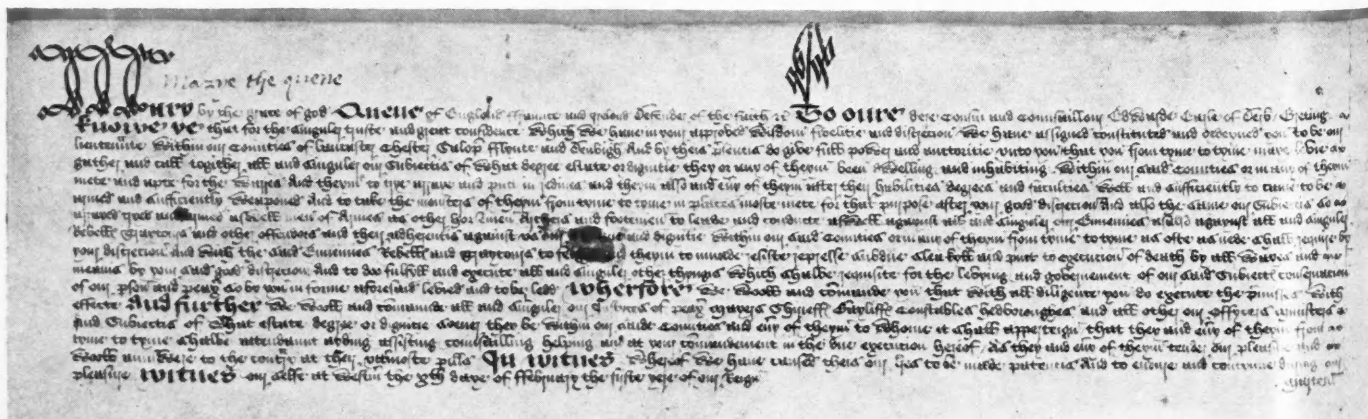 Marye the quene
Mary by the grace of god Quene of England ffraunce and Ireland Defender of the faith &c To oure dere Cousin and Counsaillour Edwarde Erle of Derb Greting
Knowe ye that for the singuler truste and great confidence Which We have in your approved Wisdom fidelitie and discretion We have assigned constituted and ordeyned you to be our
lieutenaunte Within our Counties of lancaster Chester Salop fflynte and Denbigh And by theis presentes do give full power and auctoritie unto you that you from tyme to tyme maye levie
gather and call together all and singuler our Subiectis of What degree estate or dignitie they or any of theym been dwelling and inhabiting Within our said Counties or in any of theym
mete and apte for the Warres And theym to trye arraye and putt in redines and theym also and every of theym after their habilities degrees and faculties Well and sufficiently to cause to be
armed and sufficiently Weaponed And to take the mousters of theym from tyme to tyme in places moste mete for that purpose after your good discretion And also the same our Subiectis so
arraied tryed and armed aswell men of Armes as other horsmen Archers and footemen to leade and conducte aswell against all and singuler our Ennemies as also against all and singuler
Rebells Traytours and other offendours and their adherentis against us our and dignitie Within our said Counties or in any of theym from tyme to tyme as ofte as nede shall require by
your discretion And With the said Ennemies Rebells and Traytours to and theym to invade resiste represse subdue slea kyll and putt to execution of death by all Wayes and
meanes by your said good discretion And to doo fulfyll and execute all and singuler other thynges Which shalbe requisite for the levying and governement of our said Subiectis conservation
of our person and peax so by you in forme aforesaid levied and to be lead Wherfore We Wooll and comaunde you that With all diligence you do execute the premisses With
effecte And further We Wooll and comaunde all and singuler our Justices of peax Mayers Shireffs Baylliffs Constables hedboroughes and all other our Officers ministers
and Subiectis of What estate degree or dignitie soever they be Within our saide Counties and every of theym to Whome it shall apperteign that they and every of theym from
tyme to tyme shalbe attendaunt ayding assisting counsailling helping and at your comaundement in the due execution hereof As they and every of theym tender our pleasure and
Wooll aunswere to the contrary at their uttmoste perills In witnes Whereof We have caused theis our lres to be made patentis And to endure and contynue during our
pleasure Witnes our selfe at Westm the xth daye of ffebruary the firste yere of our Reign